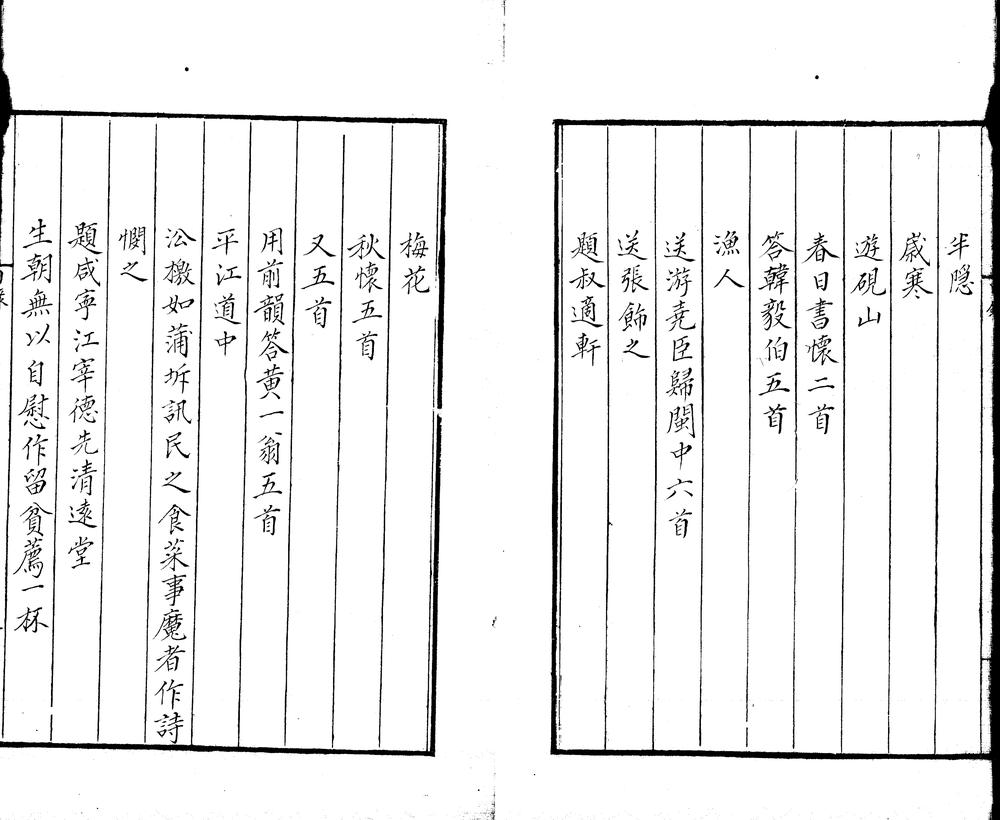 半隱
歲寒
遊硯山
春日書懷二首
答韓毅伯五首
漁人
送游堯臣歸閩中六首
送張飾之
題叔適軒
梅花
秋懷五首
又五首
用前韻答黃一翁五首
平江道中
㳂檄如蒲圻訊民之食菜事魔者作詩
憫之
題咸寧江宰德先清遠堂
生朝無以自慰作留貧薦一杯